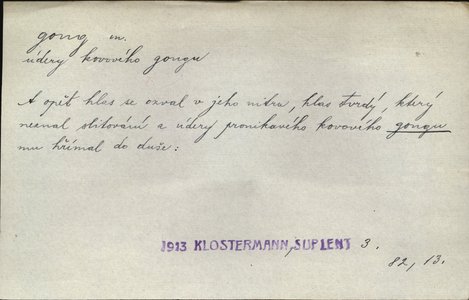 gong m.
údery kovového gongu
A opět hlas se ozval v jeho nitru, hlas tvrdý, který
neznal slitování a údery pronikavého kovového gongu
mu hřímal do duše:
1913 KLOSTERMANN, SUPLENT 3.
82, 13.